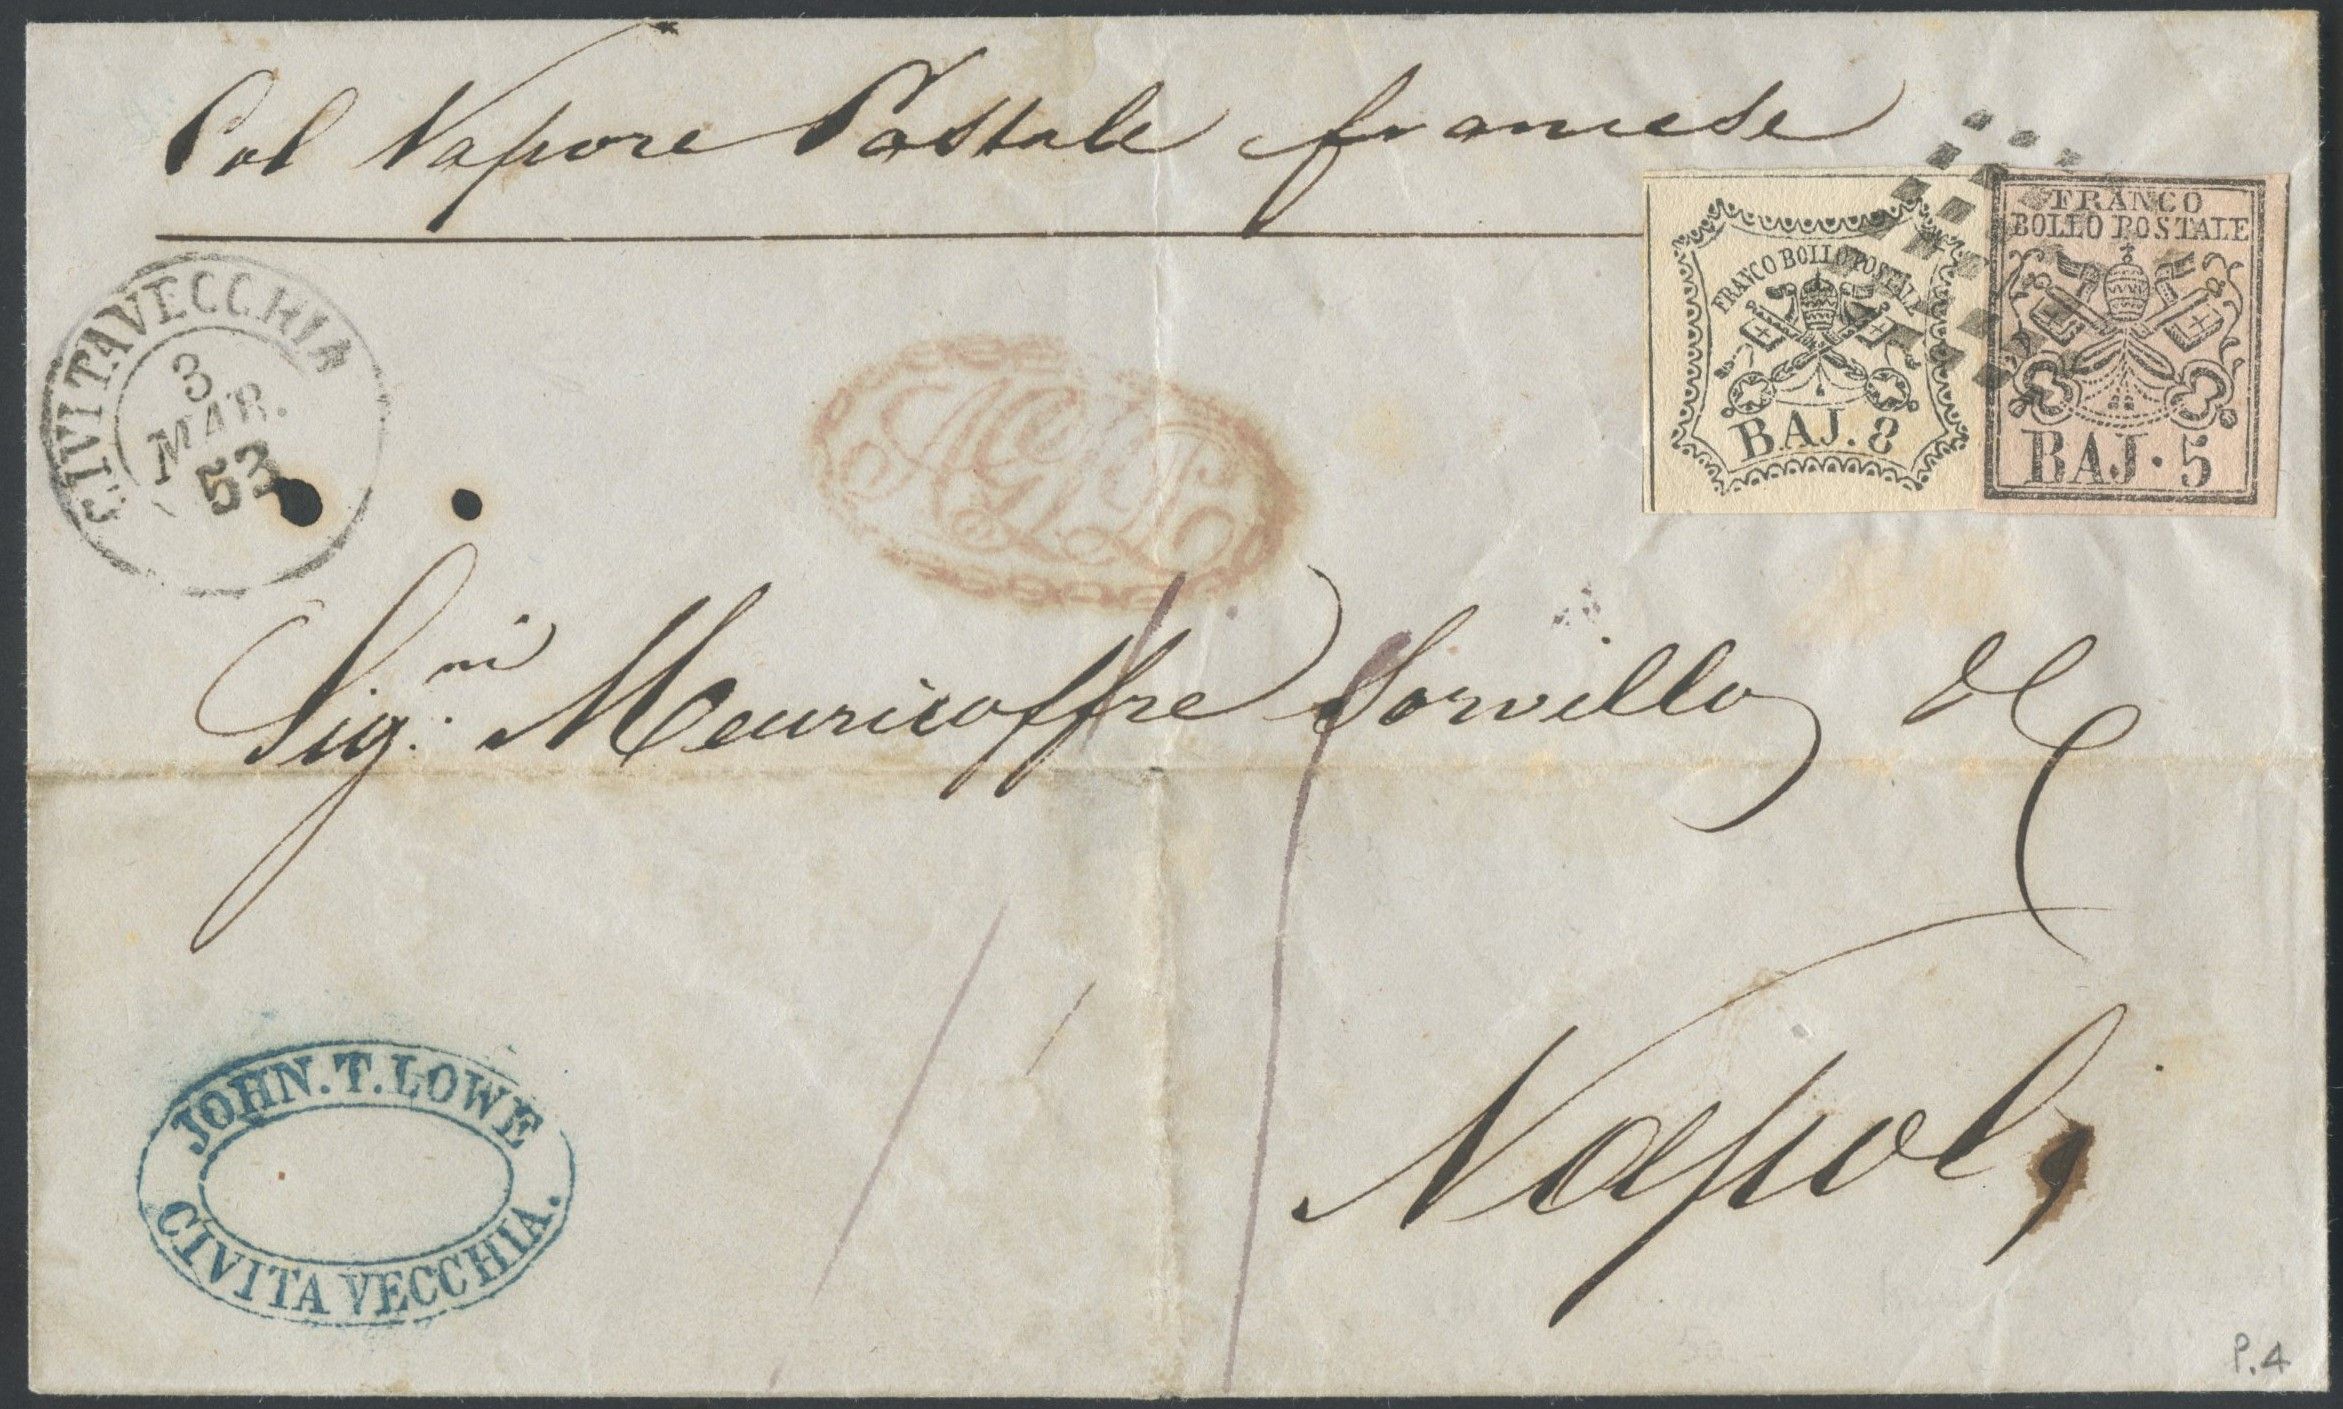 Col Vapore Postale francese
FRANCO BOLLO POSTALE
BAJ. 8
FRANCO
BOLLO POSTALE
BAJ. 5
CIVITAVECCHIA
3
MAR.
53
Sig.ni Meuricoffre Sorvillo & C
Napoli
JOHN. T. LOWE
CIVITA VECCHIA.
P.4